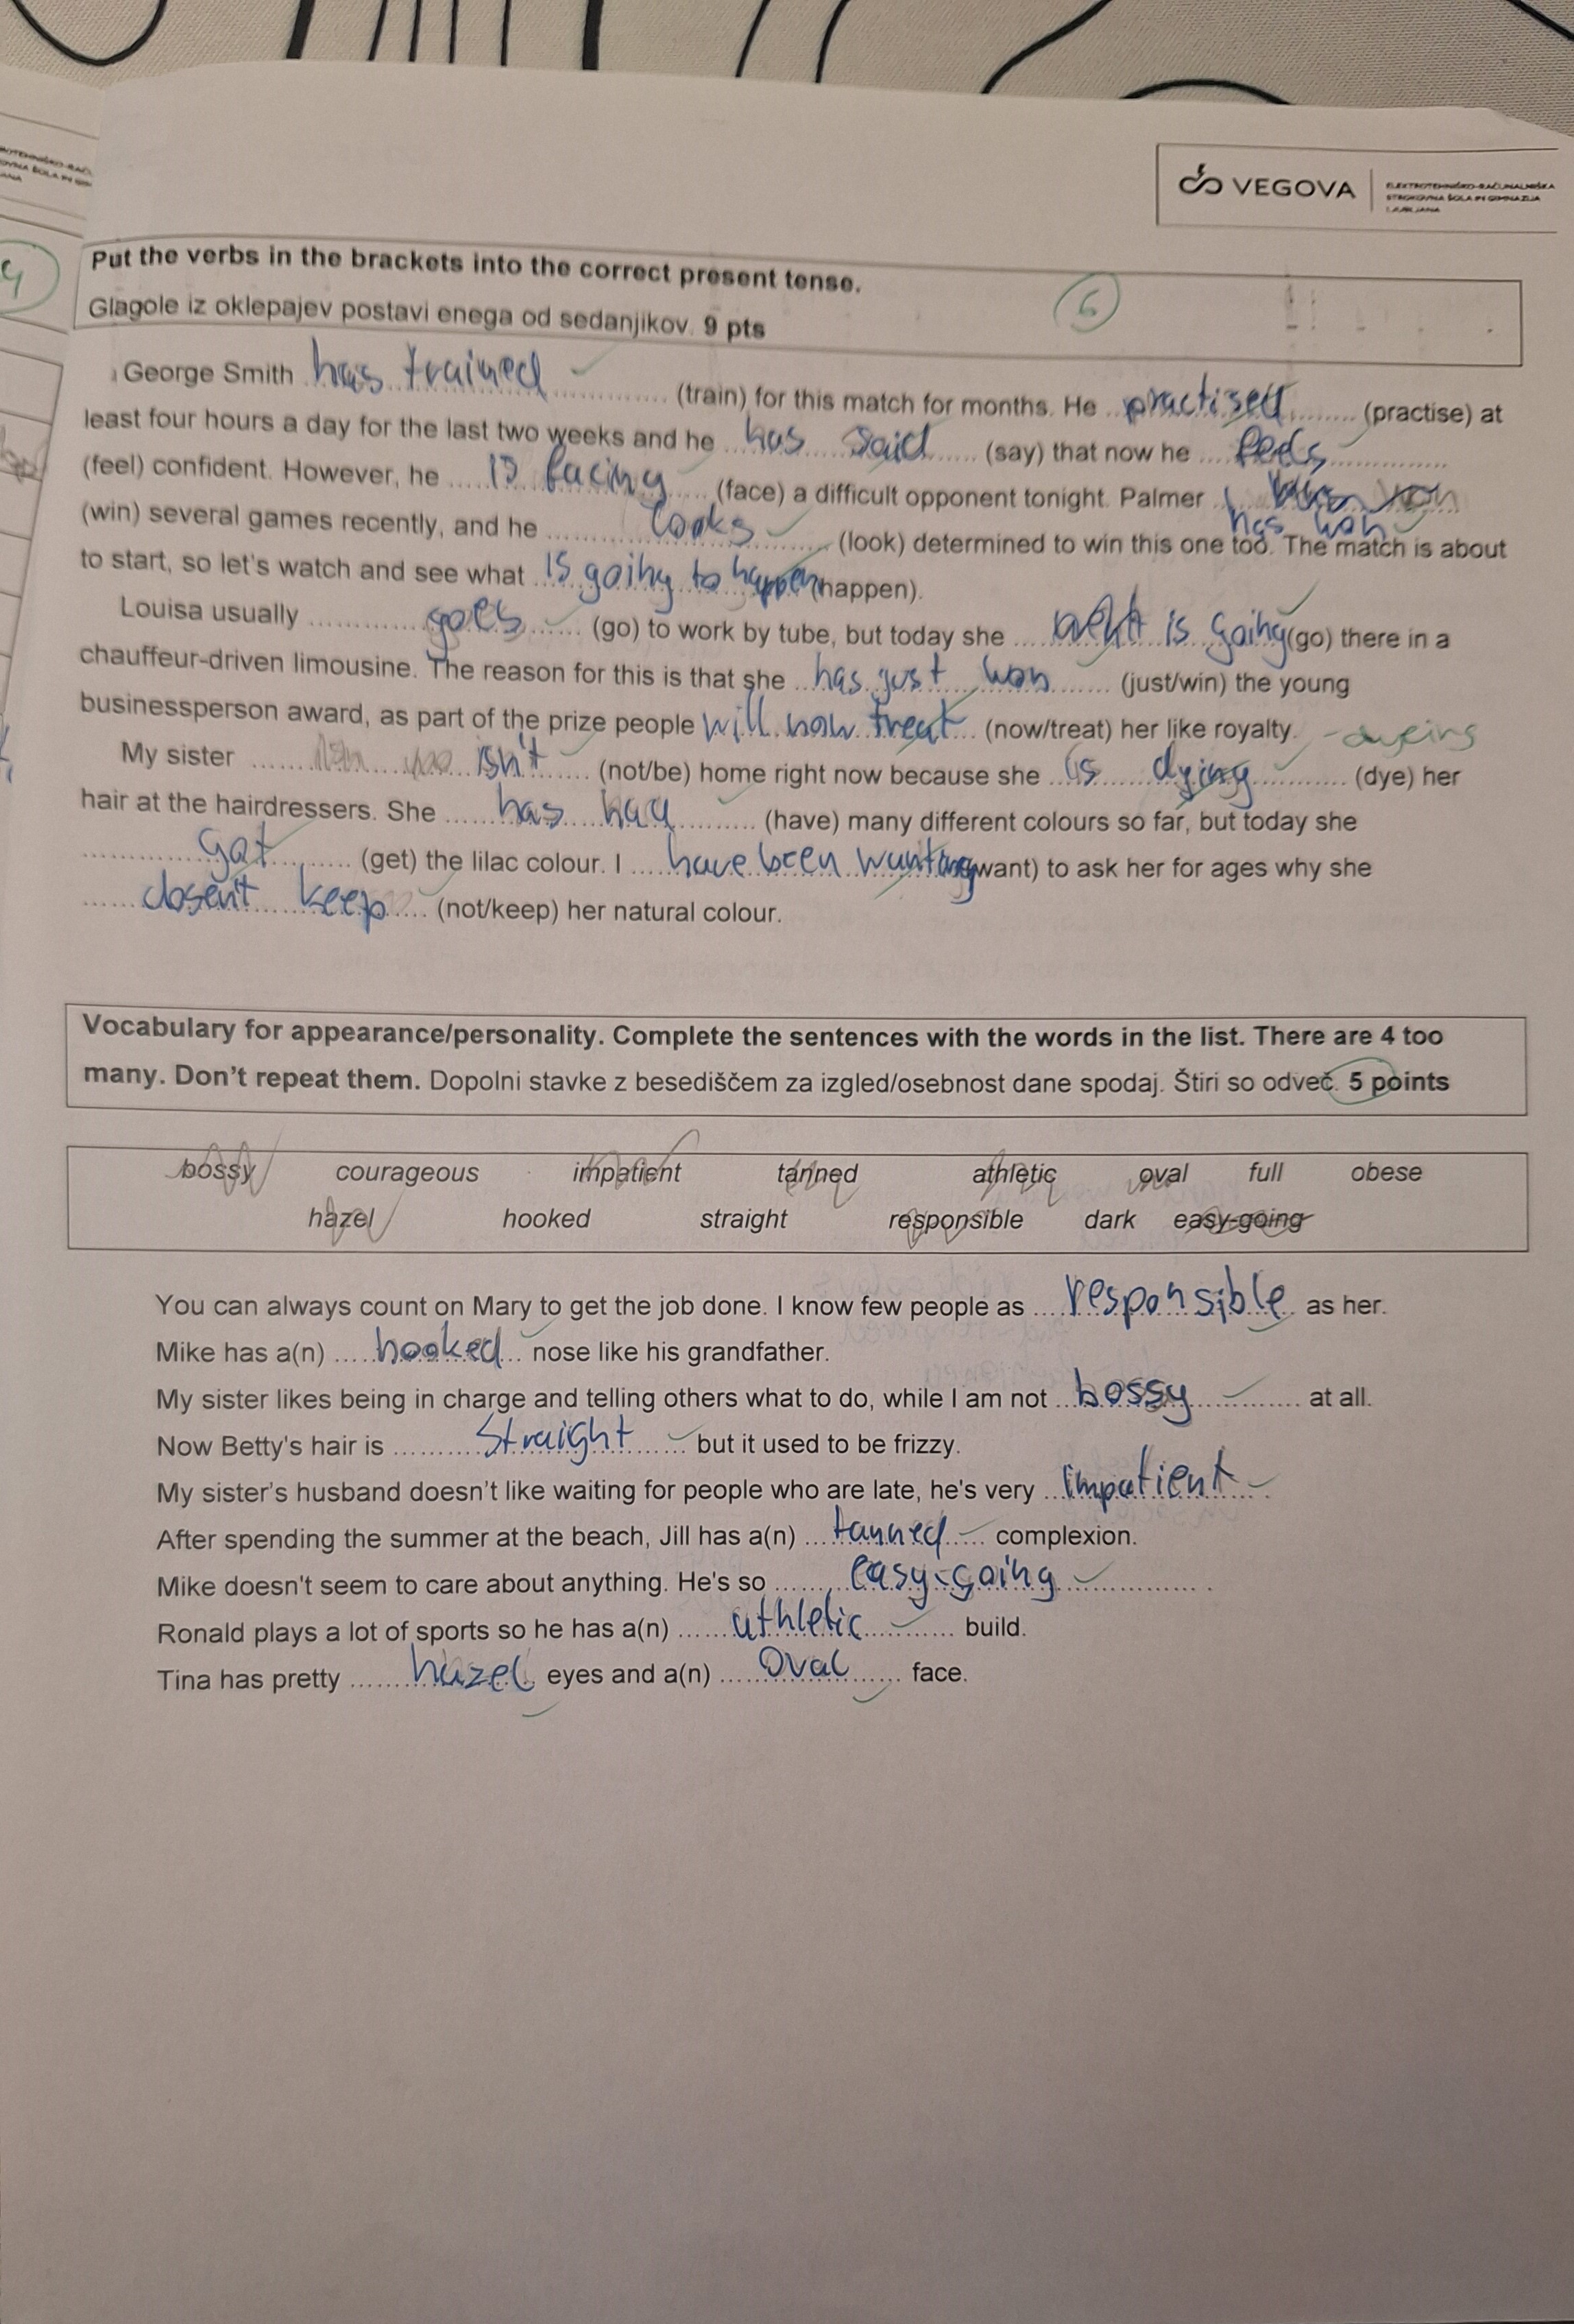 VEGOVA
ELEKTROTEHNIŠKO-RAČUNALNIŠKA
STROKOVNA ŠOLA IN GIMNAZIJA
LJUBLJANA
Put the verbs in the brackets into the correct present tense.
Glagole iz oklepajev postavi enega od sedanjikov. 9 pts
6
George Smith has trained (train) for this match for months. He practised (practise) at
least four hours a day for the last two weeks and he has said (say) that now he feels
(feel) confident. However, he is facing (face) a difficult opponent tonight. Palmer has won
(win) several games recently, and he looks (look) determined to win this one too. The match is about
to start, so let's watch and see what is going to happen (happen).
Louisa usually goes (go) to work by tube, but today she is going (go) there in a
chauffeur-driven limousine. The reason for this is that she has just won (just/win) the young
businessperson award, as part of the prize people will now treat (now/treat) her like royalty. - dyeing
My sister isn't (not/be) home right now because she is dying (dye) her
hair at the hairdressers. She has had (have) many different colours so far, but today she
got (get) the lilac colour. I have been wanting (want) to ask her for ages why she
dosen't keep (not/keep) her natural colour.
Vocabulary for appearance/personality. Complete the sentences with the words in the list. There are 4 too
many. Don't repeat them. Dopolni stavke z besediščem za izgled/osebnost dane spodaj. Štiri so odveč. 5 points
bossy courageous impatient tanned athletic oval full obese
hazel hooked straight responsible dark easy-going
You can always count on Mary to get the job done. I know few people as responsible as her.
Mike has a(n) hooked nose like his grandfather.
My sister likes being in charge and telling others what to do, while I am not bossy at all.
Now Betty's hair is straight but it used to be frizzy.
My sister's husband doesn't like waiting for people who are late, he's very impatient
After spending the summer at the beach, Jill has a(n) tanned complexion.
Mike doesn't seem to care about anything. He's so easy-going .
Ronald plays a lot of sports so he has a(n) athletic build.
Tina has pretty hazel eyes and a(n) oval face.